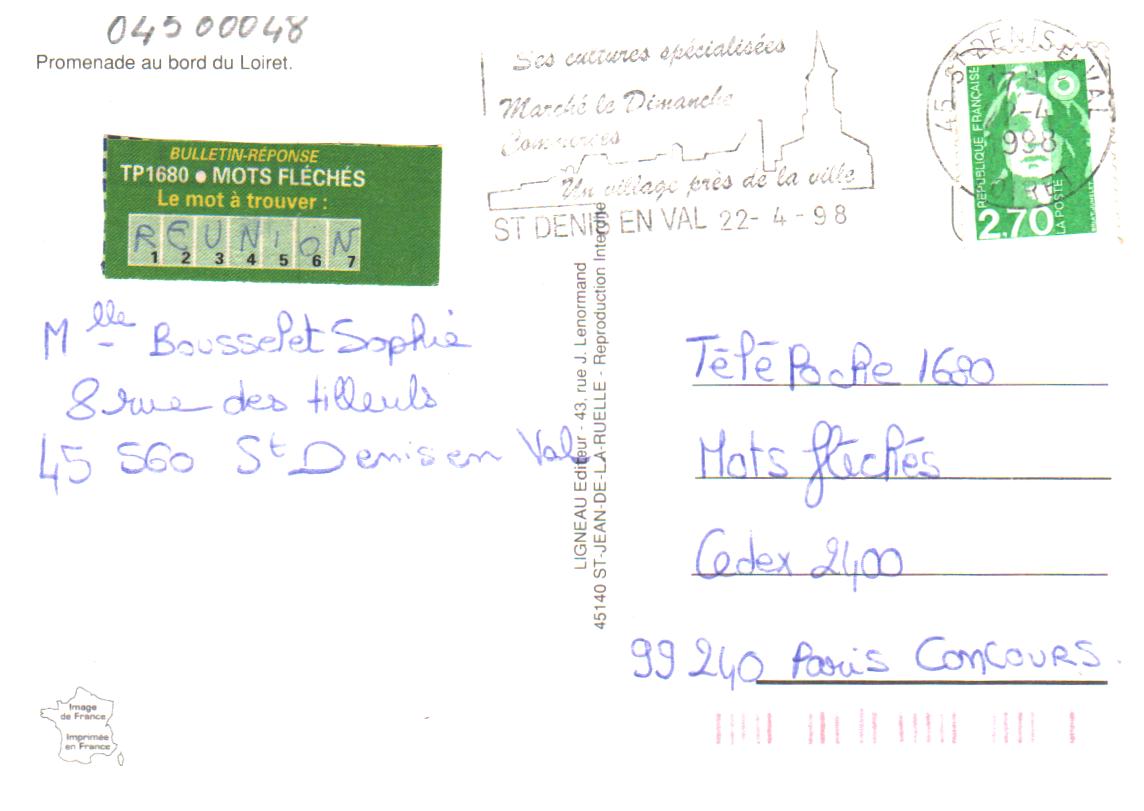 04500048
Promenade au bord du Loiret.
BULLETIN-RÉPONSE
TP1680 ● MOTS FLÉCHÉS
Le mot à trouver :
REUNION
1 2 3 4 5 6 7
Mlle Bousselet Sophie
8 rue des tilleuls
45 560 St Denis en Val
Image
de France
Imprimée
en France
Ses cultures spécialisées
Marché le Dimanche
Commerces
Un village près de la ville
ST DENIS EN VAL 22-4-98
45 ST DENIS EN VAL
17 H
2-4
998
LOIRET
RÉPUBLIQUE FRANÇAISE
2,70
LA POSTE
LIGNEAU Editeur - 43, rue J. Lenormand
45140 ST-JEAN-DE-LA-RUELLE - Reproduction Interdite
Télé Poche 1680
Mots fléchés
Cedex 2400
99 240 Paris Concours